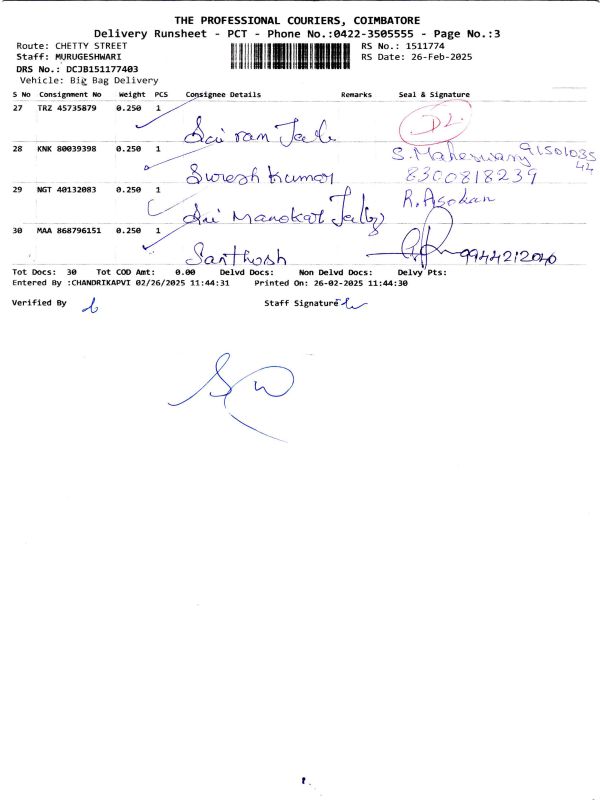 THE PROFESSIONAL COURIERS, COIMBATORE
Delivery Runsheet - PCT - Phone No.:0422-3505555 - Page No.:3
Route: CHETTY STREET RS No.: 1511774
Staff: MURUGESHWARI RS Date: 26-Feb-2025
DRS No.: DCJB151177403
Vehicle: Big Bag Delivery
S No Consignment No Weight PCS Consignee Details Remarks Seal & Signature
27 TRZ 45735879 0.250 1
Sai ram
28 KNK 80039398 0.250 1 S. Maheswary 9150103544
Suresh Kumar 8300818239
29 NGT 40132083 0.250 1 R. Asokan
Sri Manokar
30 MAA 868796151 0.250 1
Santhosh 9944212040
Tot Docs: 30 Tot COD Amt: 0.00 Delvd Docs: Non Delvd Docs: Delvy Pts:
Entered By :CHANDRIKAPVI 02/26/2025 11:44:31 Printed On: 26-02-2025 11:44:30
Verified By Staff Signature